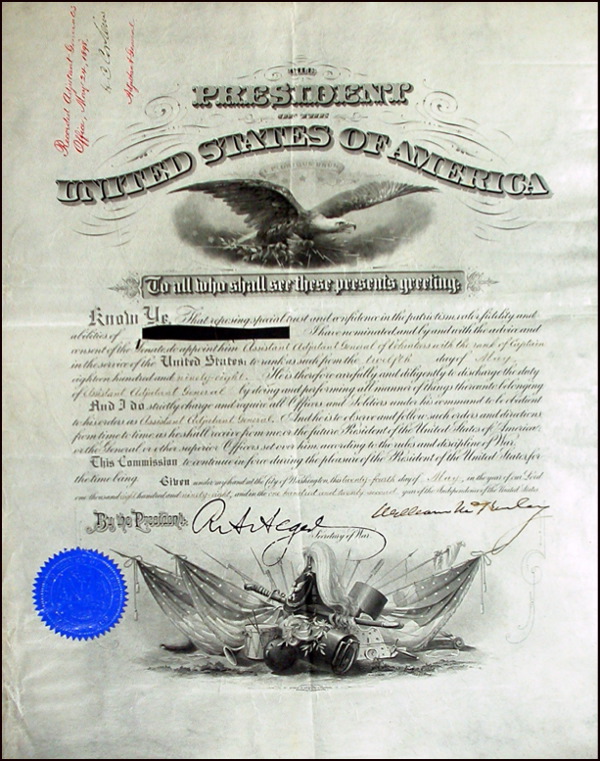 Recorded Adjutant General's
Office, May 24, 1898.
Adjutant General.
THE
PRESIDENT
OF THE
UNITED STATES OF AMERICA
To all who shall see these presents greeting:
Know Ye, That reposing special trust and confidence in the patriotism, valor, fidelity and
abilities of I have nominated and by and with the advice and
consent of the Senate do appoint him Assistant Adjutant General of Volunteers with the rank of Captain
in the service of the United States: to rank as such from the twelfth day of May
eighteen hundred and ninety-eight. He is therefore carefully and diligently to discharge the duty
of Assistant Adjutant General by doing and performing all manner of things thereunto belonging
And I do strictly charge and require all Officers and Soldiers under his command to be obedient
to his orders as Assistant Adjutant General. And he is to observe and follow such orders and directions
from time to time, as he shall receive from me or the future President of the United States of America:
or the General or other superior Officers set over him, according to the rules and discipline of War.
This Commission to continue in force during the pleasure of the President of the United States for
the time being. Given under my hand at the city of Washington, this twenty fourth day of May, in the year of our Lord
one thousand eight hundred and ninety-eight, and in the one hundred and twenty second year of the Independence of the United States
By the President: William McKinley
R A Alger
Secretary of War.